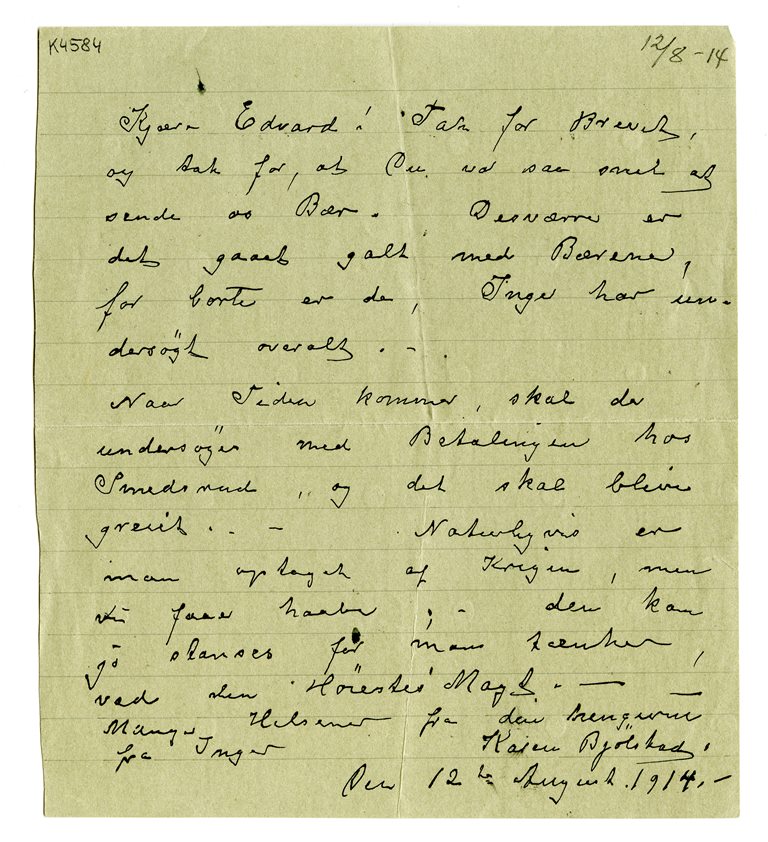 K4584
12/8-14
Kjære Edvard! Tak for Brevet,
og tak for, at Du var saa snil at
sende os Bær. Desværre er
det gaaet galt med Bærene,
for borte er de, Inger har un-
dersøgt overalt. -.
Naar Tiden kommer, skal de
undersøges med Betalingen hos
Smedsrud, og det skal blive
greiit. . - Naturligvis er
man optaget af Krigen, men
vi faaer haabe, - den kan
jo stanses før man tænker,
ved den Høiestes Magt. -
Mange Hilsener fra din hengivne
fra Inger Karen Bjölstad.
Den 12te August. 1914. -